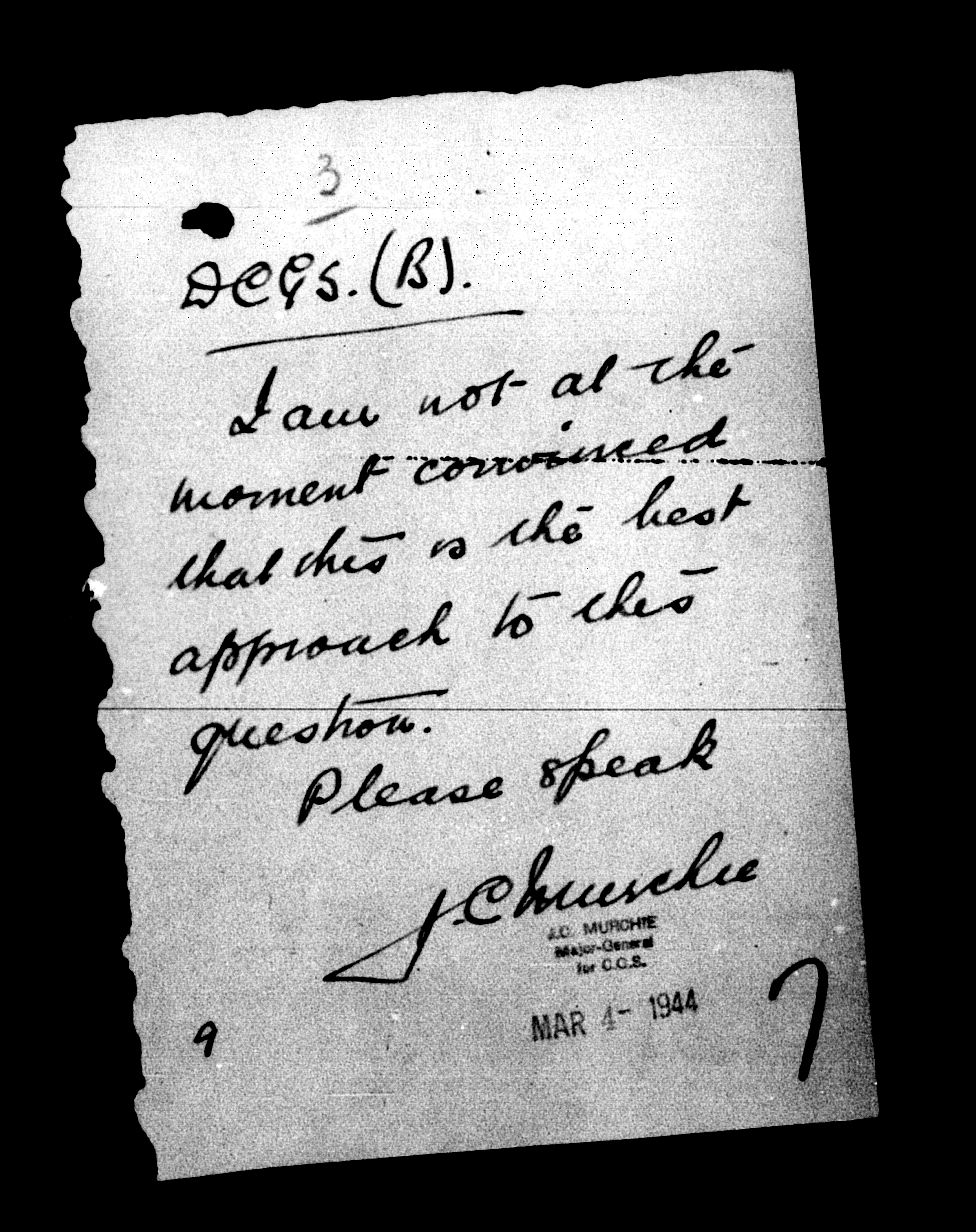 3
DCGS. (B).
I am not at the
moment convinced
that this is the best
approach to this
question.
Please speak
J.C Murchie
J.C. MURCHIE
Major-General
for C.G.S.
MAR 4- 1944
9
7